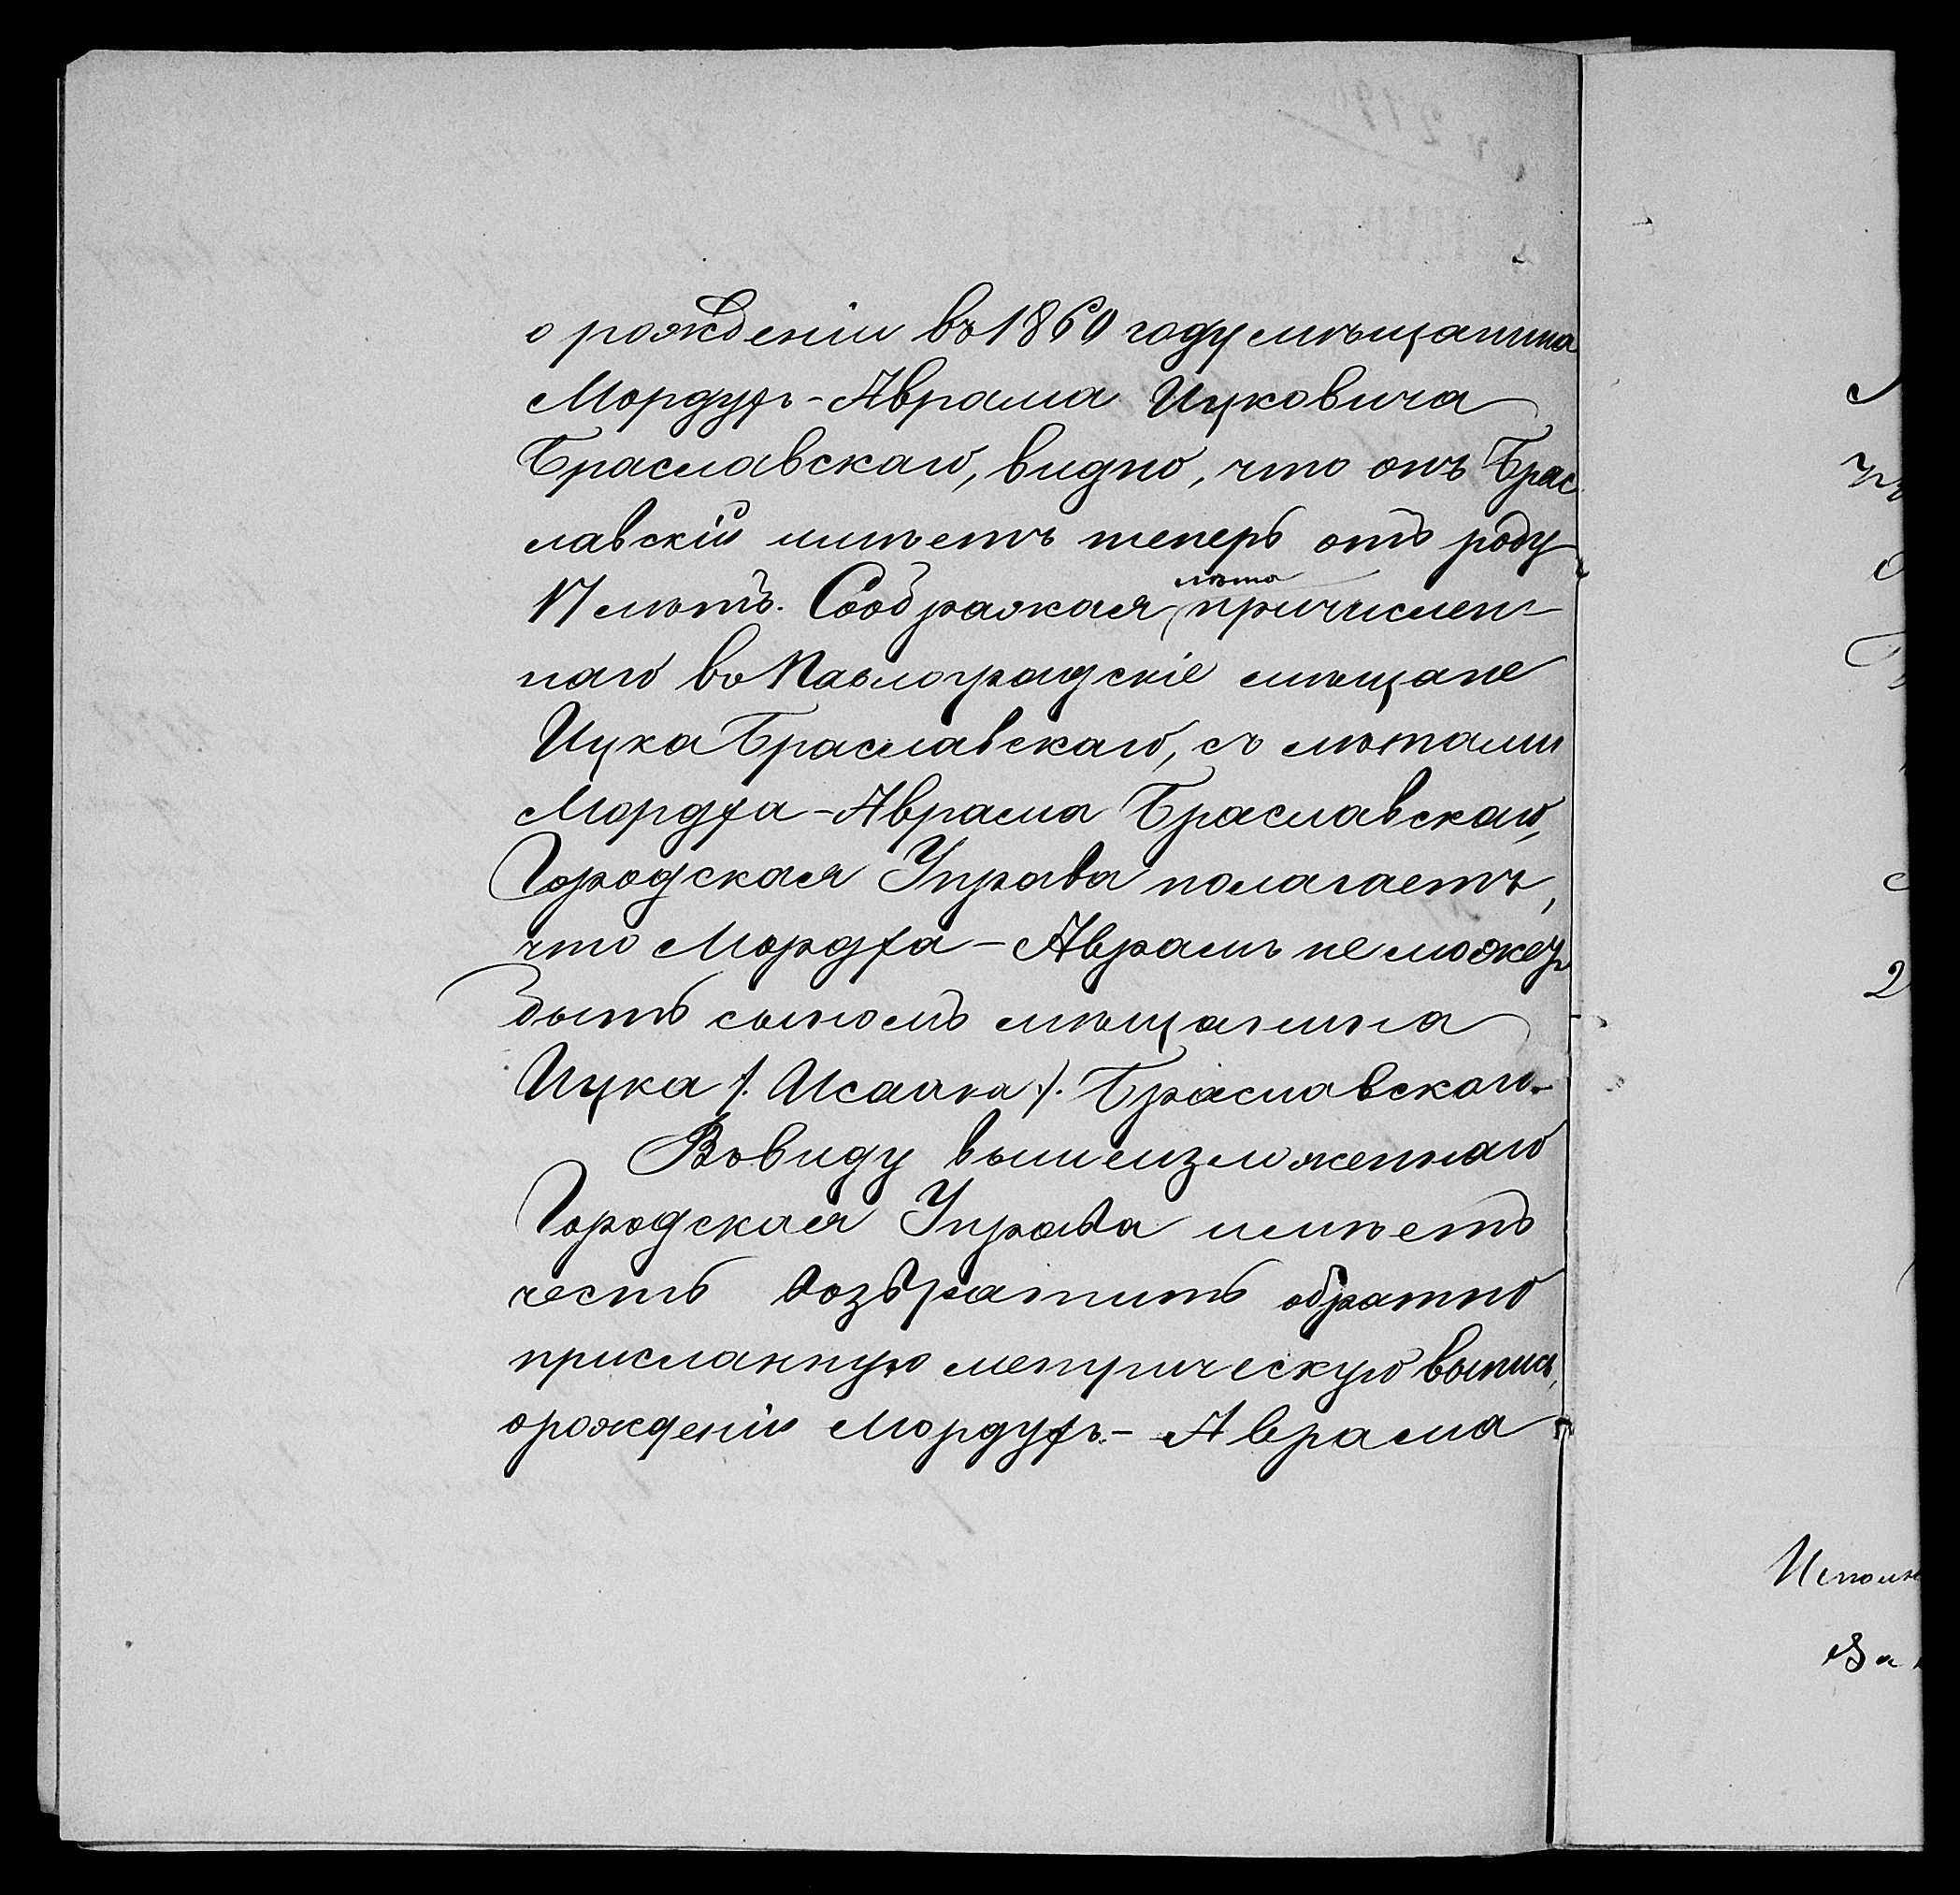 о рожденіи въ 1860 году мѣщанина
Мордухъ-Аврама Ицковича
Браславскаго, видно, что онъ Брас
лавскій имѣетъ теперь отъ роду
17 лѣтъ. Соображая лѣта причислен-
наго въ Павлоградскіе мѣщане
Ицка Браславскаго, съ лѣтами
Мордха-Аврама Браславскаго,
Городская Управа полагаетъ,
что Мордха-Аврамъ не можетъ
быть сыномъ мѣщанина
Ицка /. Исаака ./. Браславскаго.
Въ виду вышеизложеннаго
Городская Управа имѣетъ
честь возвратить обратно
присланную метрическую выпись,
о рожденіи Мордухъ-Аврама